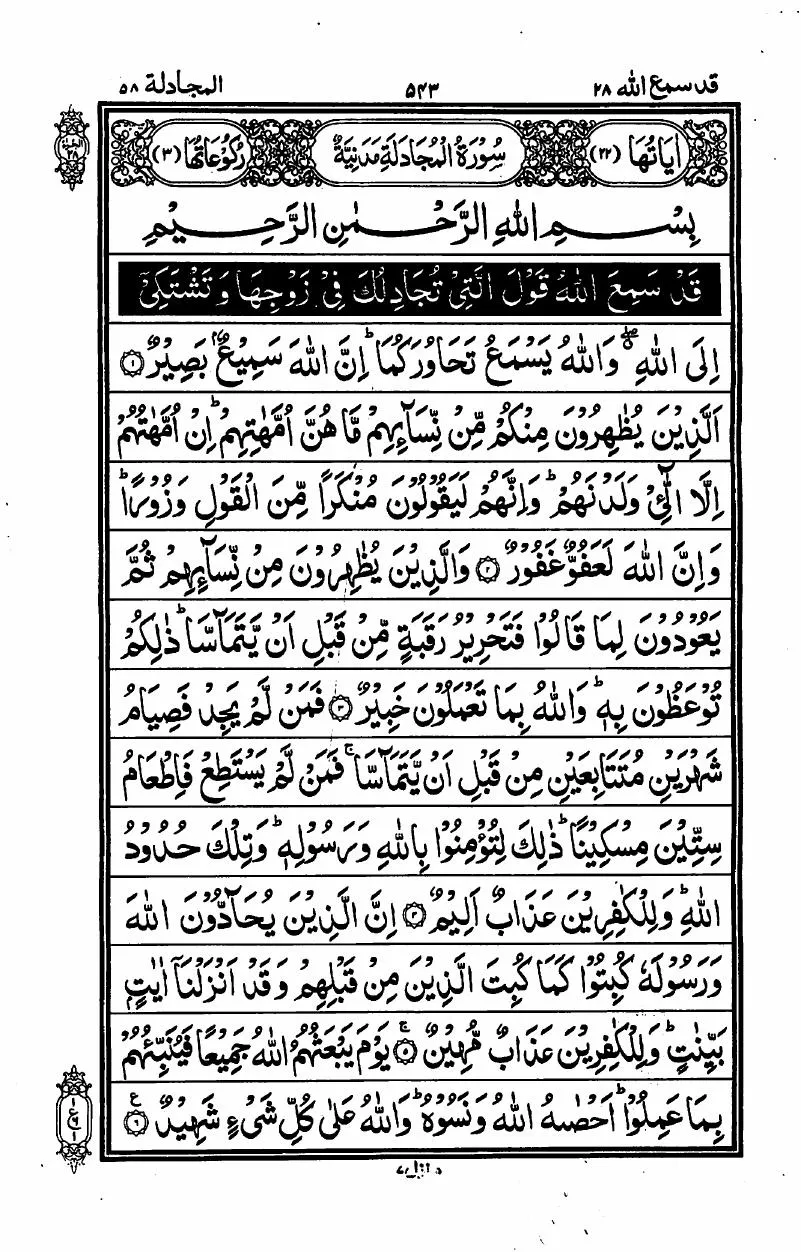 قد سمع الله ۲۸
۵۴۳
المجادلة ۵۸
اٰيَاتُهَا (۲۲)
سُوْرَةُ الْمُجَادَلَةِ مَدَنِيَّةٌ
رُكُوْعَاتُهَا (۳)
بِسْمِ اللهِ الرَّحْمٰنِ الرَّحِيْمِ
قَدْ سَمِعَ اللهُ قَوْلَ الَّتِيْ تُجَادِلُكَ فِيْ زَوْجِهَا وَتَشْتَكِيْٓ
اِلَى اللهِ ۖ وَاللهُ يَسْمَعُ تَحَاوُرَكُمَا ؕ اِنَّ اللهَ سَمِيْعٌۢ بَصِيْرٌ ۝۱
اَلَّذِيْنَ يُظٰهِرُوْنَ مِنْكُمْ مِّنْ نِّسَآئِهِمْ مَّا هُنَّ اُمَّهٰتِهِمْ ؕ اِنْ اُمَّهٰتُهُمْ
اِلَّا الّٰٓئِيْ وَلَدْنَهُمْ ؕ وَاِنَّهُمْ لَيَقُوْلُوْنَ مُنْكَرًا مِّنَ الْقَوْلِ وَزُوْرًا ؕ
وَاِنَّ اللهَ لَعَفُوٌّ غَفُوْرٌ ۝۲ وَالَّذِيْنَ يُظٰهِرُوْنَ مِنْ نِّسَآئِهِمْ ثُمَّ
يَعُوْدُوْنَ لِمَا قَالُوْا فَتَحْرِيْرُ رَقَبَةٍ مِّنْ قَبْلِ اَنْ يَّتَمَآسَّا ؕ ذٰلِكُمْ
تُوْعَظُوْنَ بِهٖ ؕ وَاللهُ بِمَا تَعْمَلُوْنَ خَبِيْرٌ ۝۳ فَمَنْ لَّمْ يَجِدْ فَصِيَامُ
شَهْرَيْنِ مُتَتَابِعَيْنِ مِنْ قَبْلِ اَنْ يَّتَمَآسَّا ۚ فَمَنْ لَّمْ يَسْتَطِعْ فَاِطْعَامُ
سِتِّيْنَ مِسْكِيْنًا ؕ ذٰلِكَ لِتُؤْمِنُوْا بِاللهِ وَرَسُوْلِهٖ ؕ وَتِلْكَ حُدُوْدُ
اللهِ ؕ وَلِلْكٰفِرِيْنَ عَذَابٌ اَلِيْمٌ ۝۴ اِنَّ الَّذِيْنَ يُحَآدُّوْنَ اللهَ
وَرَسُوْلَهٗ كُبِتُوْا كَمَا كُبِتَ الَّذِيْنَ مِنْ قَبْلِهِمْ وَقَدْ اَنْزَلْنَآ اٰيٰتٍۢ
بَيِّنٰتٍ ؕ وَلِلْكٰفِرِيْنَ عَذَابٌ مُّهِيْنٌ ۝۵ۚ يَوْمَ يَبْعَثُهُمُ اللهُ جَمِيْعًا فَيُنَبِّئُهُمْ
بِمَا عَمِلُوْا ؕ اَحْصٰىهُ اللهُ وَنَسُوْهُ ؕ وَاللهُ عَلٰى كُلِّ شَيْءٍ شَهِيْدٌ ۝۶ع